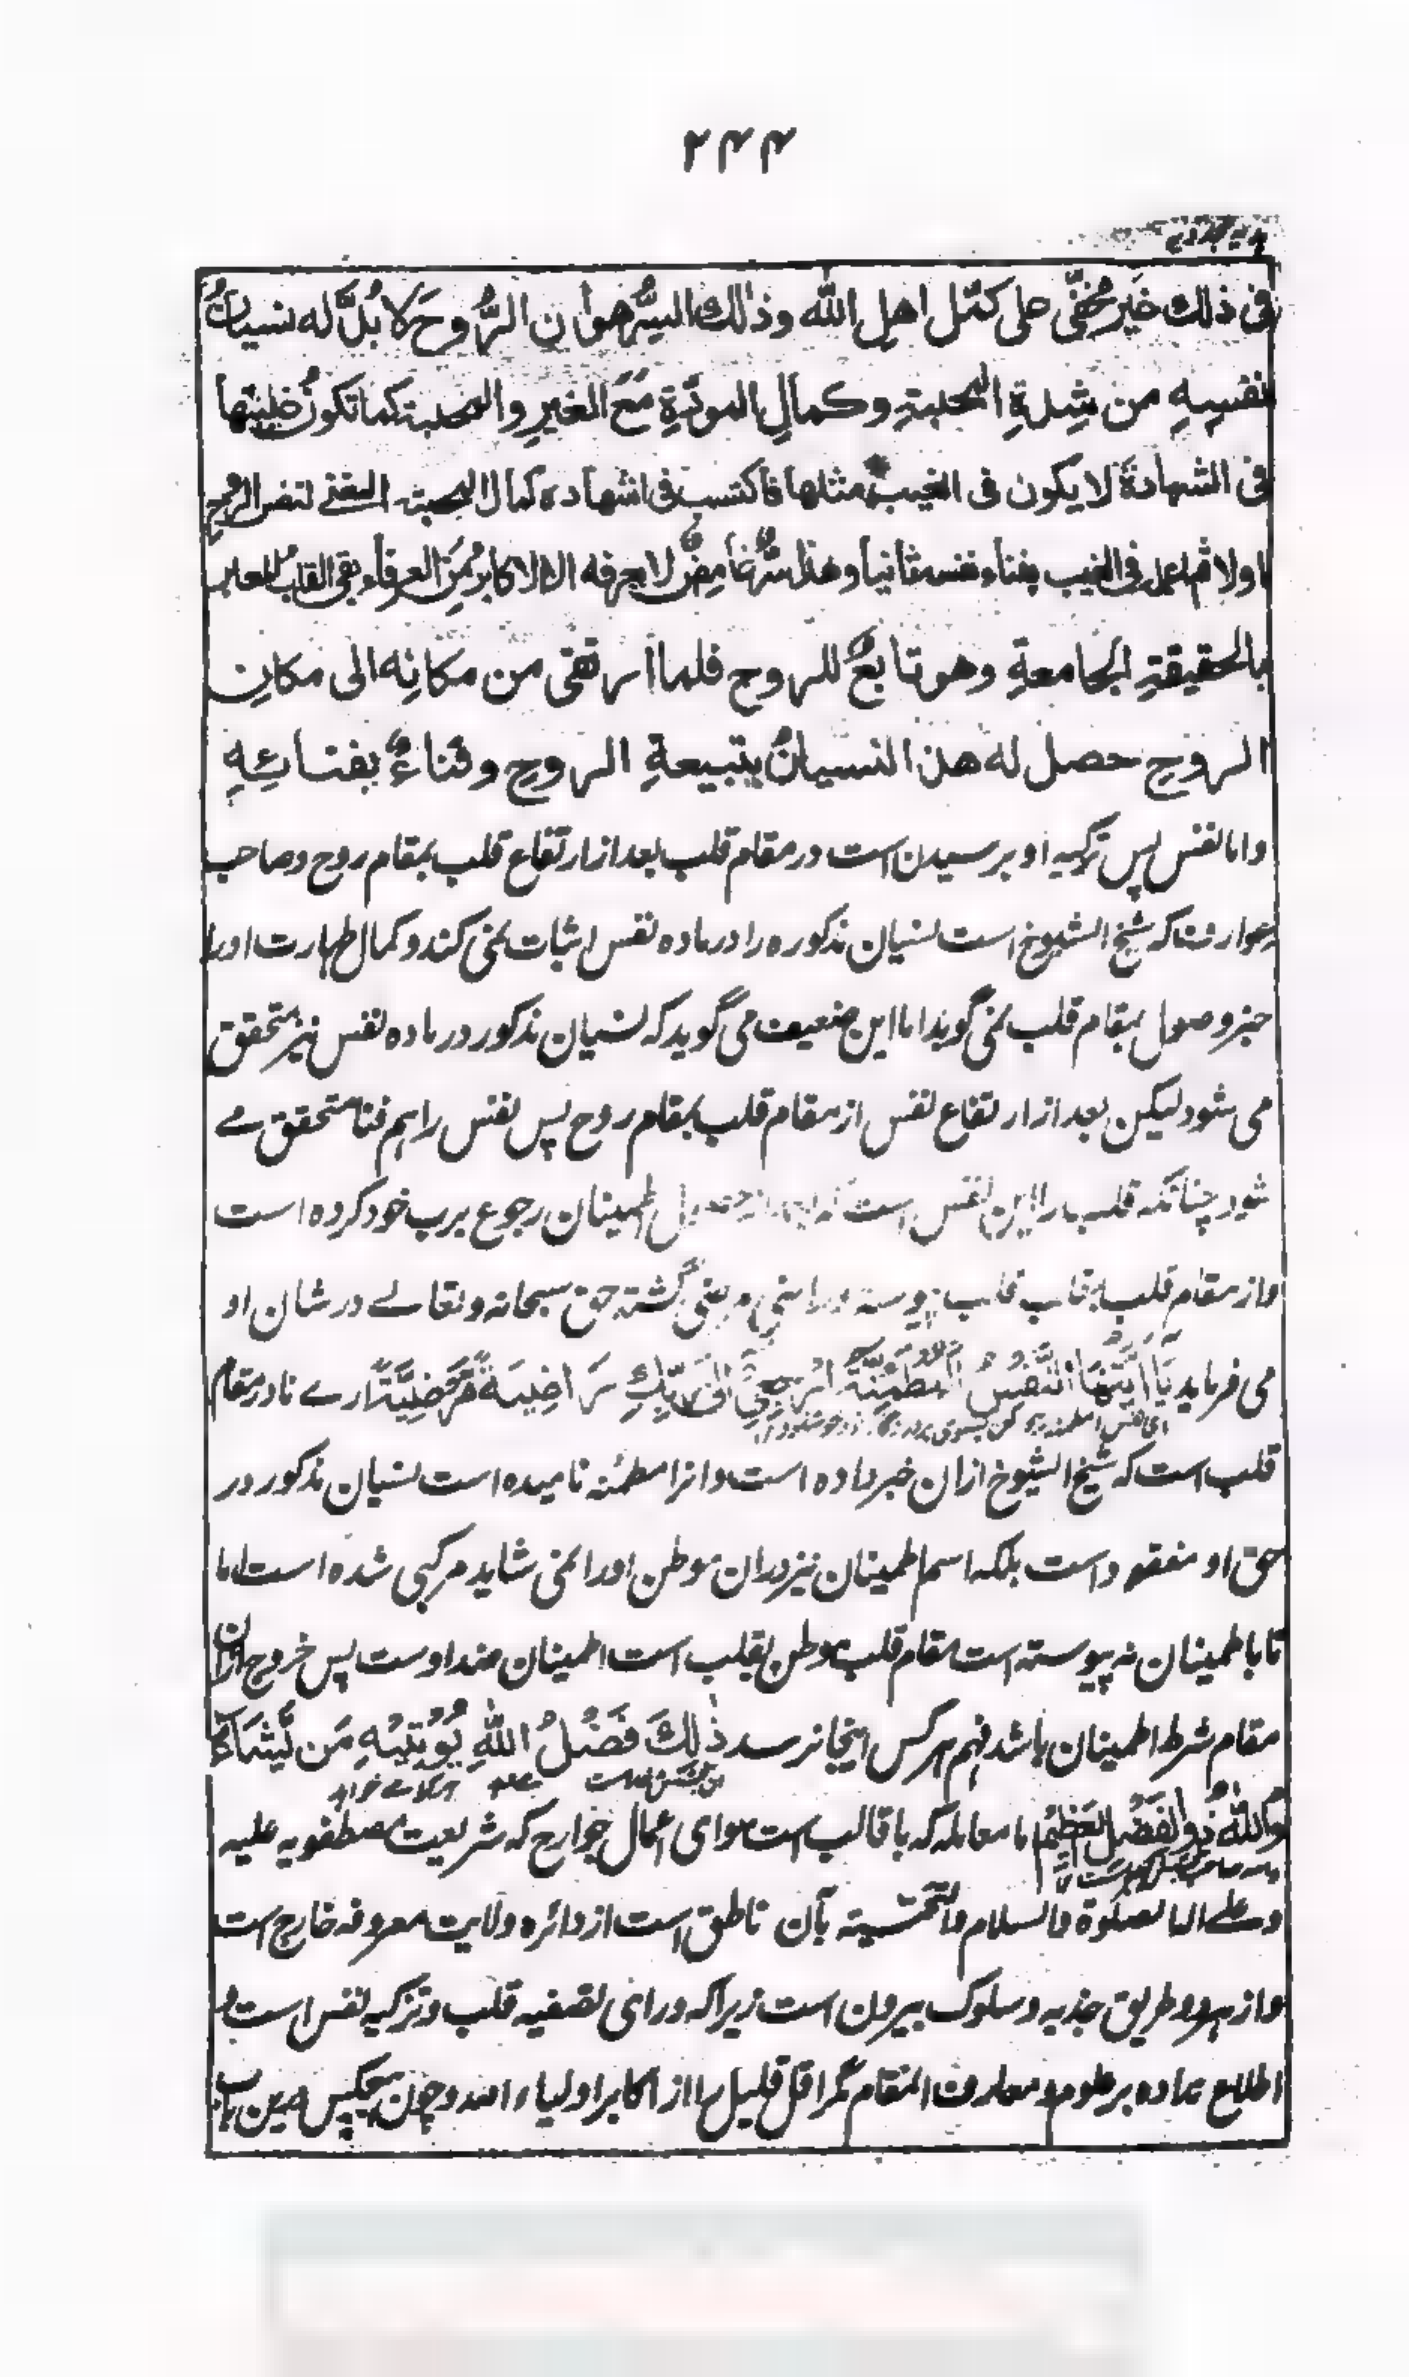 ۲۴۴
ہدیہ مجددیہ
فی ذلك خَیر مُخفّی علی کمّل اهل الله وذٰلك السِّرُ هوان الرُّوحَ لا بُدَّ له نسیانُ
نفسِهٖ من شِدةِ المحبةِ وکمالِ المودّةِ مَعَ الغیرِ والمحبة کما تکونُ خلیتها
فی الشهادة لا یکون فی الغیب مثلها فاکتسب فی الشهادہ کمال المحبتہ المفنے لنفس الروح
اولا ثم اعمل فی الغیب بفناء نفسه ثانیا وهذا سرٌّ غامضٌ لا یعرفه الا الاکابرُ مِنَ العرفاء بقی القلب المعبر
بالحقیقةِ الجامعةِ وهو تابعٌ للروح فلما ارتقی من مکانِه الی مکانِ
الروحِ حصل له هذا النسیانُ بتبیعةِ الروحِ وفناءٌ بفنائِهٖ
واما نفس پس تزکیہ او برسیدن است در مقام قلب بعد از ارتفاع قلب بمقام روح و صاحب
عوارف کہ شیخ الشیوخ است نسیان مذکورہ را در مادہ نفس اثبات نمی کند و کمال طہارت اورا
جز وصول بمقام قلب نمی گوید اما این ضعیف می گوید کہ نسیان مذکور در مادہ نفس نیز متحقق
می شود لیکن بعد از ارتفاع نفس از مقام قلب بمقام روح پس نفس را ہم فنا متحقق مے
شود چنانکہ قلب را این نفس است کہ بعد از حصول اطمینان رجوع برب خود کردہ است
و از مقام قلب بقلب قلب پیوستہ و راضی و مرضی گشتہ حق سبحانہ و تعالے در شان او
می فرماید یَا اَیَّتُهَا النَّفْسُ الْمُطْمَئِنَّةُ ارْجِعِیْ اِلٰی رَبِّكِ رَاضِیَةً مَّرْضِیَّةً ارے تا در مقام
قلب است کہ شیخ الشیوخ ازان خبر دادہ است و انرا مطمئنہ نامیدہ است نسیان مذکور در
حق او مفقود است بلکہ اسم اطمینان نیز دران موطن اورا نمی شاید مزکی شدہ است اما
تا با طمینان نہ پیوستہ است مقام قلب موطن تقلب است اطمینان ضد اوست پس خروج ازان
مقام شرط اطمینان باشد فہم ہر کس اینجا نرسد ذٰلِكَ فَضْلُ اللّٰهِ یُؤْتِیْهِ مَن یَّشَآءُ
وَاللّٰهُ ذُو الْفَضْلِ الْعَظِیْمِ اما معاملہ کہ با قالب است سوای اعمال جوارح کہ شریعت مصطفویہ علیہ
و علے الہ الصلوة و السلام و التحیتہ بآن ناطق است از دائرہ ولایت معروفہ خارج است
و از ہر دو طریق جذبہ و سلوک بیرون است زیرا کہ ورای تصفیہ قلب و تزکیہ نفس است و
اطلاع ندادہ بر علوم و معارف المقام مگر اقل قلیل را از اکابر اولیاء اللہ و چون ہیچکس درین باب